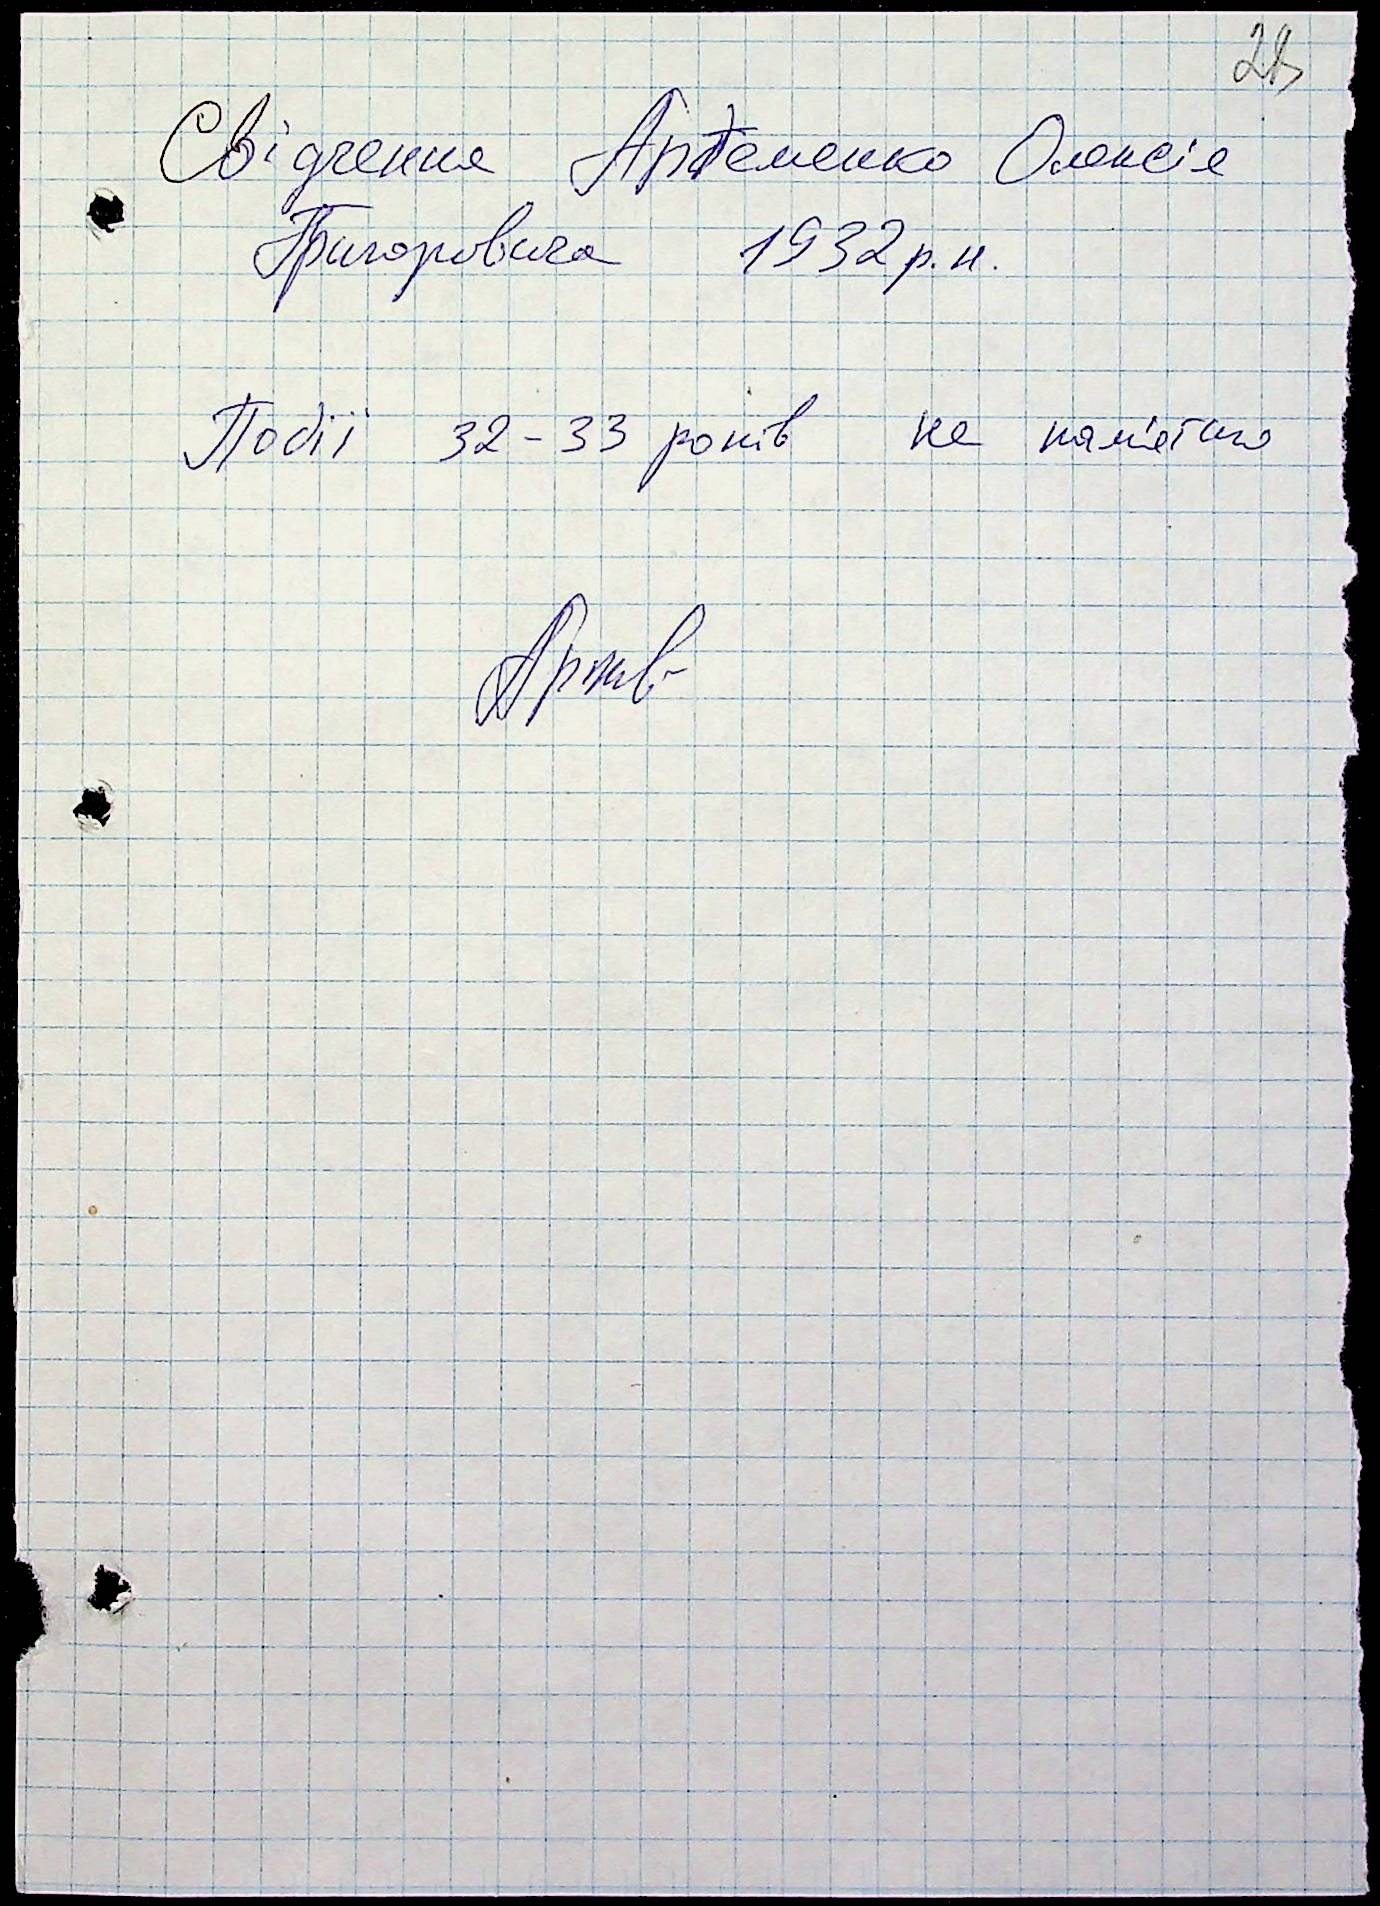 Свідчення Артеменко Олексія
Григоровича 1932 р.н.
Події 32-33 років не пам'ятаю